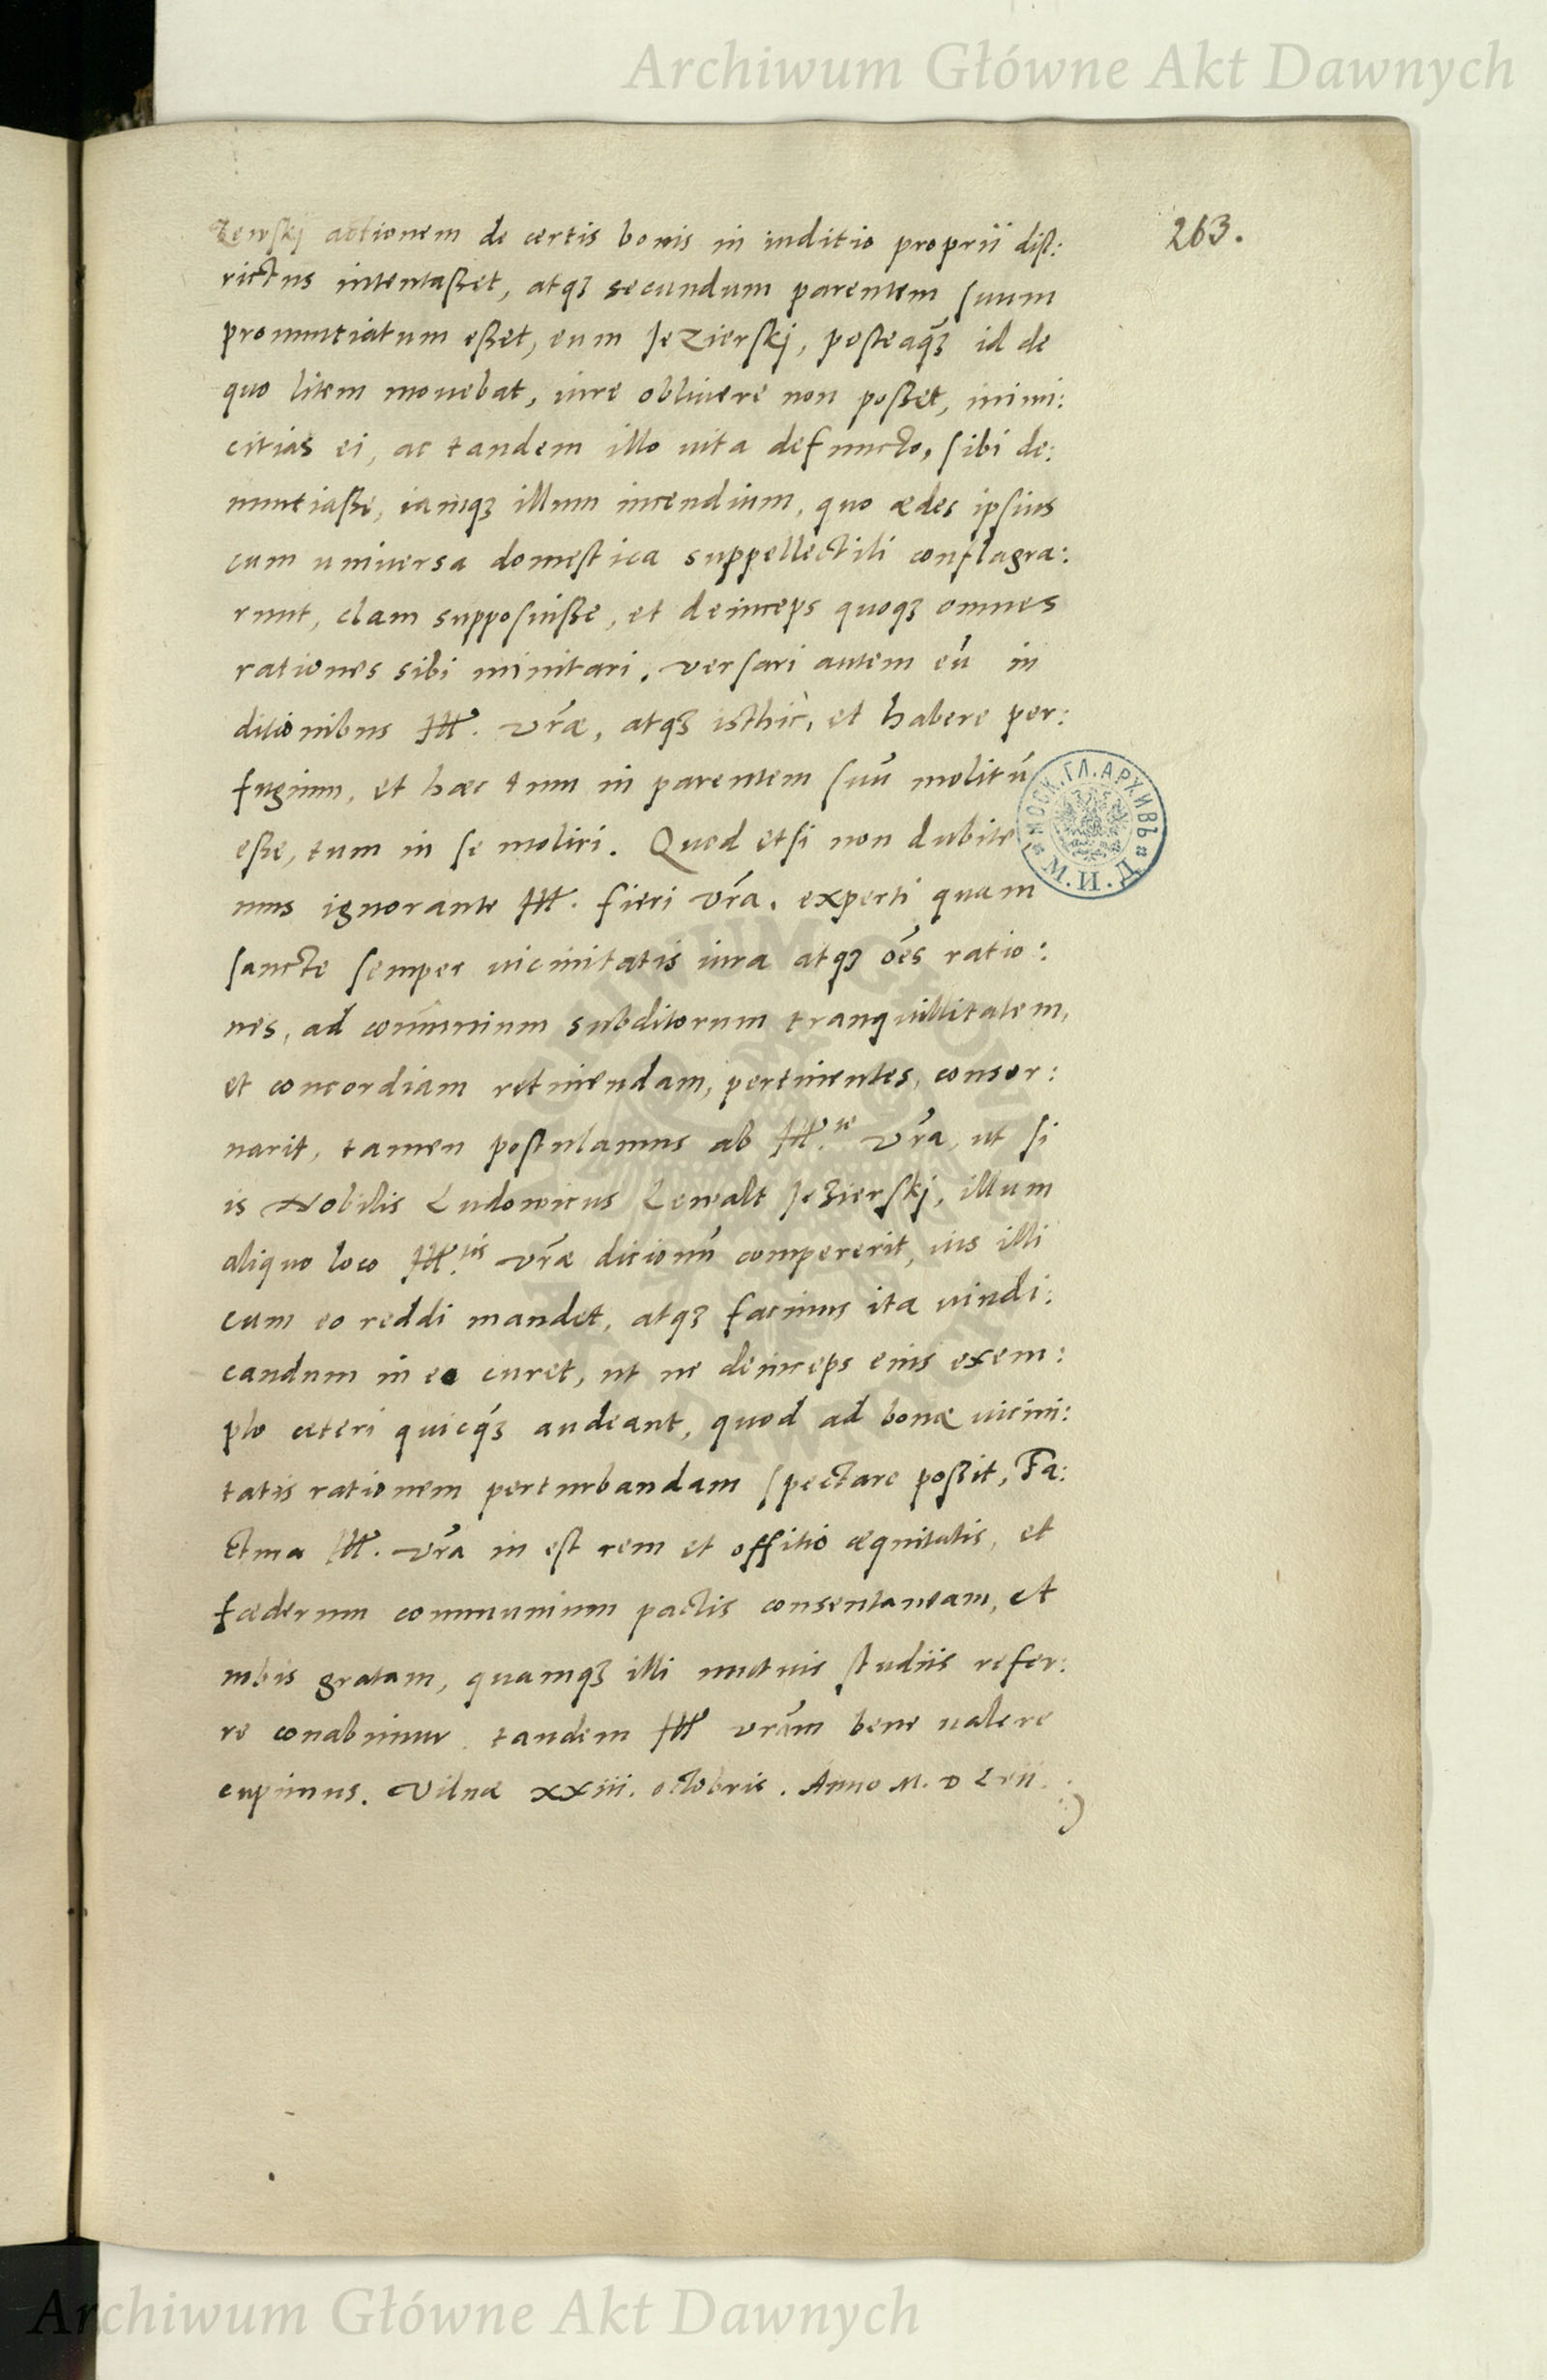 Archiwum Główne Akt Dawnych
263.
zewskj actionem de certis bonis in iuditio proprii dist:
rictus intentasset, atqz secundum parentem suum
pronuntiatum esset, eum Jezierskj, posteaq̃z id de
quo litem mouebat, iure obtinere non posset, inimi:
citias ei, ac tandem illo uita defuncto, sibi de:
nuntiasse, iamqz illum incendium, quo ædes ipsius
cum uniuersa domestica suppellectili conflagra:
runt, clam supposuisse, et deinceps quoqz omnes
rationes sibi minitari. Versari autem eũ in
ditionibus Ill. vr̃æ, atqz isthic, et habere per:
fugium, et hæc tum in parentem suũ molitũ
esse, tum in se moliri. Quod etsi non dubite
mus ignorante Ill. fieri vr̃a. experti quam
sancte semper uicinitatis iura atqz oẽs ratio:
nes, ad comũnium subditorum tranquillitatem,
et concordiam retinendam, pertinentes, conser:
uarit, tamen postulamus ab Ill.te vr̃a, ut si
is Nobilis Ludowicus Lewalt Jezierskj, illum
aliquo loco Ill.tis vr̃æ dicionũ compererit, ius illi
cum eo reddi mandet, atqz facinus ita uindi:
candum in eo curet, ut ne deinceps eius exem:
plo cæteri quicq̃z audeant, quod ad bonæ uicini:
tatis rationem perturbandam spectare possit, Fa:
ctura Ill. vr̃a in est rem et offitio æquitatis, et
fœderum communium pactis consentaneam, et
nobis gratam, quamqz illi mutuis studiis refer:
re conabimur. tandem Ill vr̃am bene ualere
cupimus. Vilnæ xxiii. octobris. Anno M. D Lxii.
МОСК. ГЛ. АРХИВЪ
М. И. Д.
Archiwum Główne Akt Dawnych